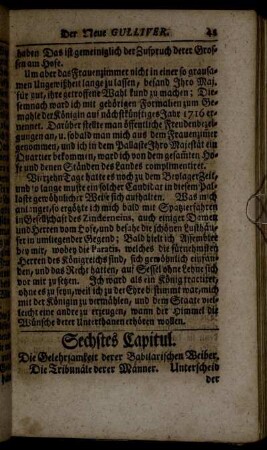 Der Neue GULLIVER. 41
haben Das ist gemeiniglich der Zuspruch derer Gros-
sen am Hofe.
Um aber das Frauenzimmer nicht in einer so grausa-
men Ungewißheit lange zu lassen, befand Ihro Maj.
für gut, ihre getroffene Wahl kund zu machen; Die-
semnach ward ich mit gehörigen Formalien zum Ge-
mahle der Königin auf nächstkünftiges Jahr 1716 er-
nennet. Darüber stellte man öffentliche Freudenbezei-
gungen an, u. sobald man mich aus dem Frauenzimer
genommen, und ich in dem Pallaste Ihro Majestät ein
Quartier bekommen, ward ich von dem gesamten Ho-
fe und denen Ständen des Landes complimentiret.
Vierzehn Tage hatte es noch zu dem Beylager Zeit,
und so lange muste ein solcher Candidat in diesem Pal-
laste gewöhnlicher Weise sich aufhalten. Was mich
anlanget, so ergötzte ich mich bald mit Spazierfahrn
in Gesellschaft des Zinckerneins, auch einiger Damen
und Herren vom Hofe, und besahe die schönen Lusthäu-
ser in umliegender Gegend; Bald hielt ich Assemblée
bey mir, wobey die welches die fürnehmsten
Herren des Königreichs sind, sich gewöhnlich einfan-
den, und das Recht hatten, auf Sessel ohne Lehne sich
vor mir zu setzen. Ich ward als ein König tractiret,
ohne es zu seyn, weil ich zu der Ehre bestimmt war, mich
mit der Königin zu vermählen, und dem Staate viel-
leicht eine andre zu erzeugen, wann der Himmel die
Wünsche derer Unterthanen erhören wollen.
Sechstes Capitul.
Die Gelehrsamkeit derer Babilarischen Weiber,
Die Tribunäle derer Männer. Unterscheid
der